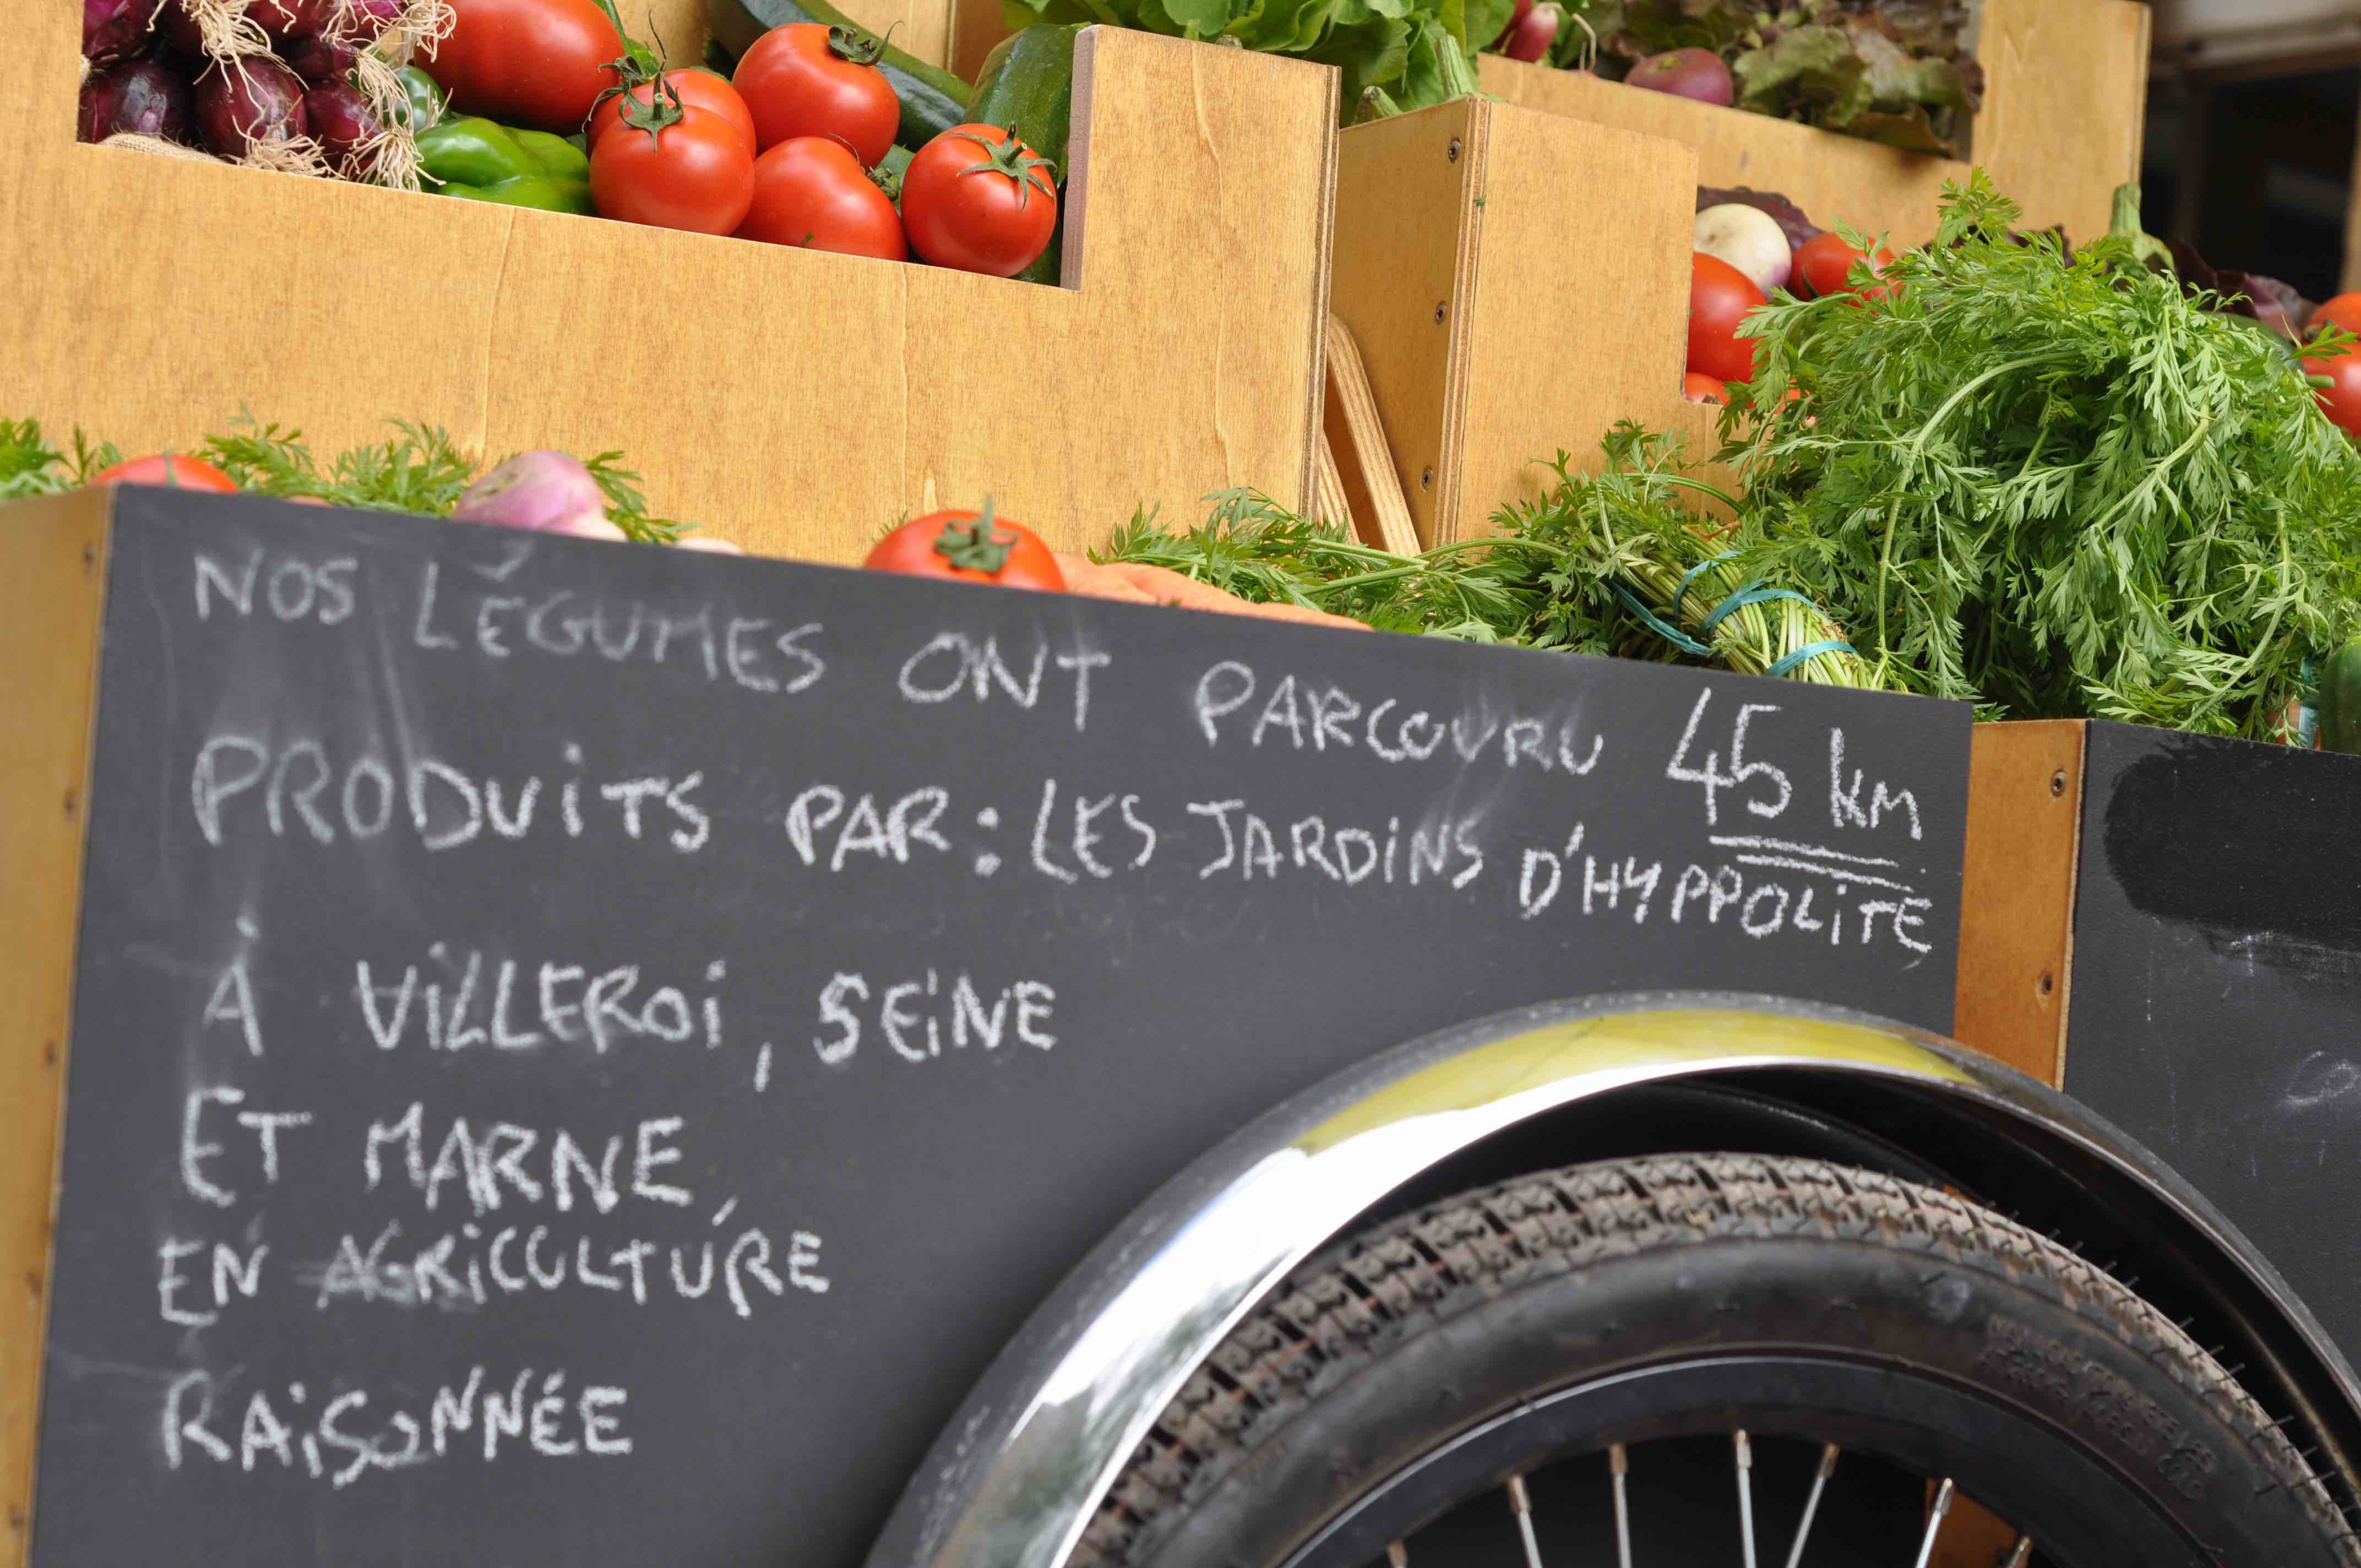 NOS LÉGUMES ONT PARCOURU 45 km
PRODUiTS PAR : LES JARDiNS D'HYPPOLiTE
À ViLLEROi, SEiNE
ET MARNE,
EN AGRiCULTURE
RAiSONNÉE